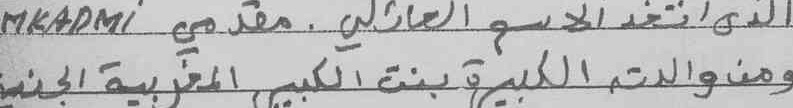 الذى اتخذ الاسم العائلي . مقدمي MKADMI
ومن والدته الكبيرة بنت الكبير المغربية الجنسية